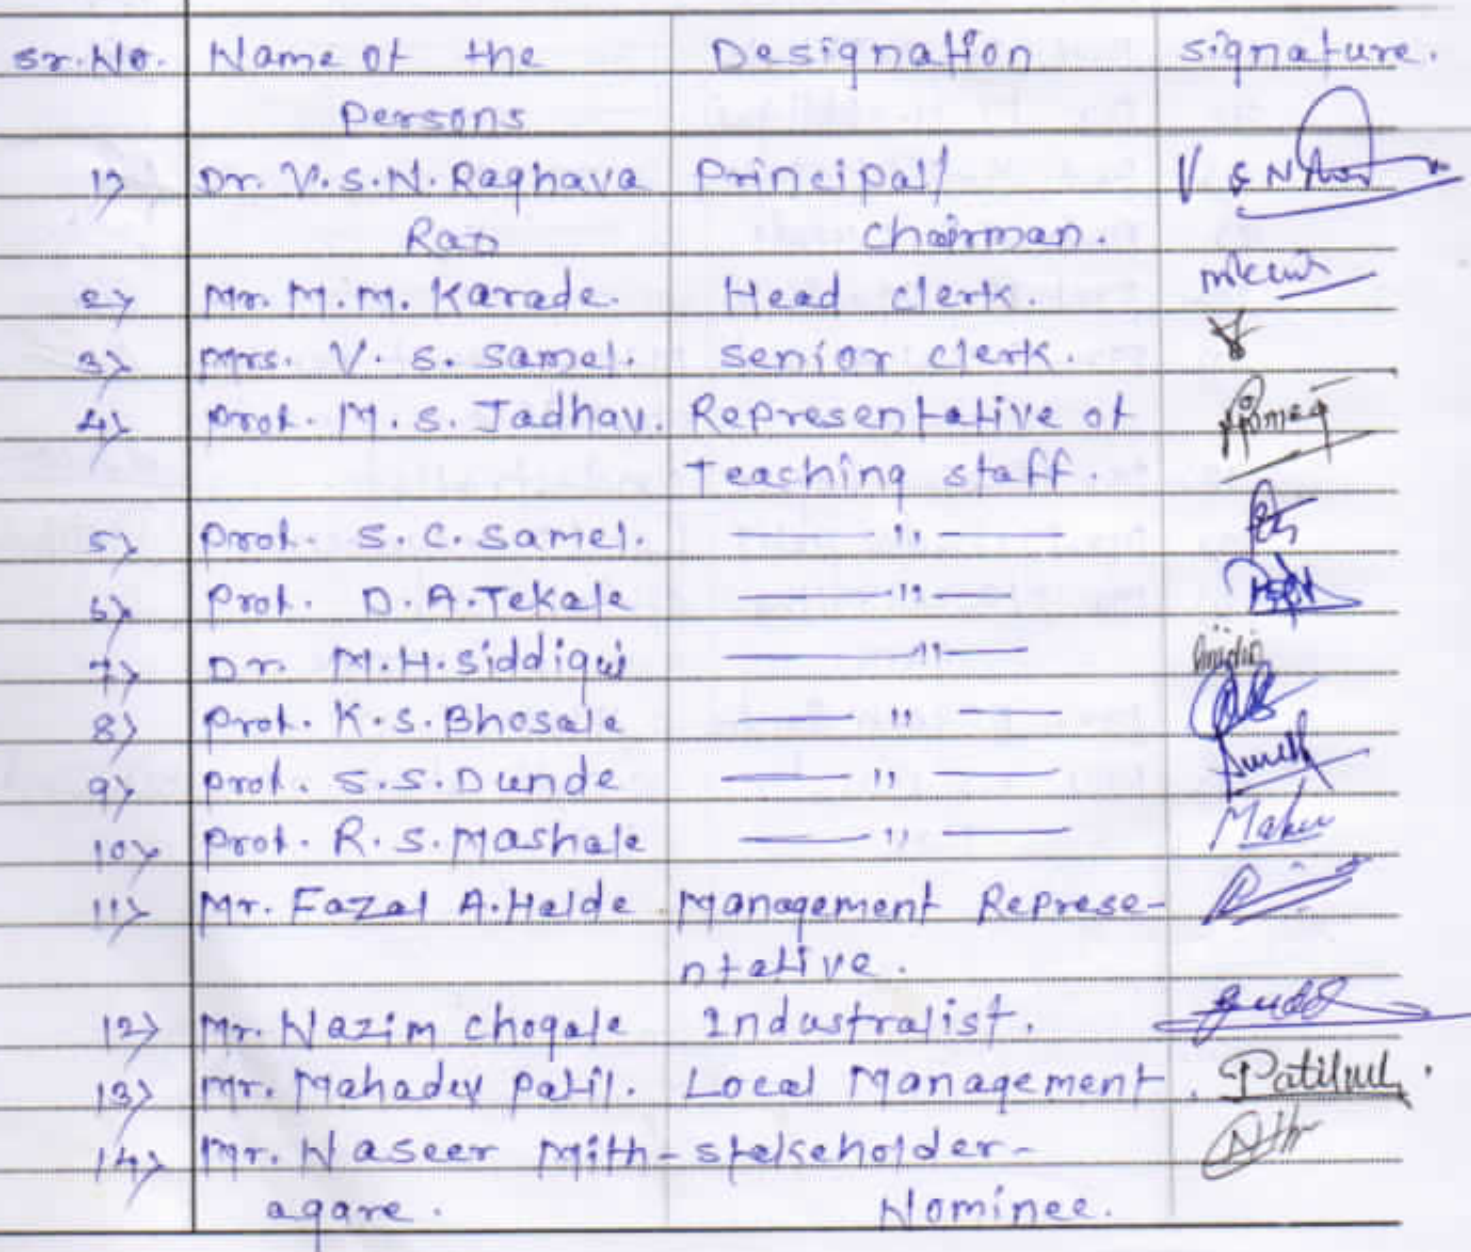 Sr.No. Name of the Designation Signature.
Persons
1) Dr. V.S.N. Raghava Principal/ V S N
Rao Chairman.
2) Mr. M.M. Karade. Head clerk.
3) Mrs. V. S. Samel. Senior clerk.
4) Prof. M. S. Jadhav. Representative of
Teaching staff.
5) Prof. S. C. Samel. — 11 —
6) Prof. D.A. Tekale — 11 —
7) Dr. M.H. Siddiqui — 11 —
8) Prof. K.S. Bhosale — 11 —
9) Prof. S.S. Dunde — 11 —
10) Prof. R.S. Mashale — 11 —
11) Mr. Fazal A. Halde Management Represe-
ntative.
12) Mr. Nazim Chogale Industralist.
13) Mr. Mahadev Patil. Local Management.
14) Mr. Naseer Mith- stakeholder-
agare. Nominee.